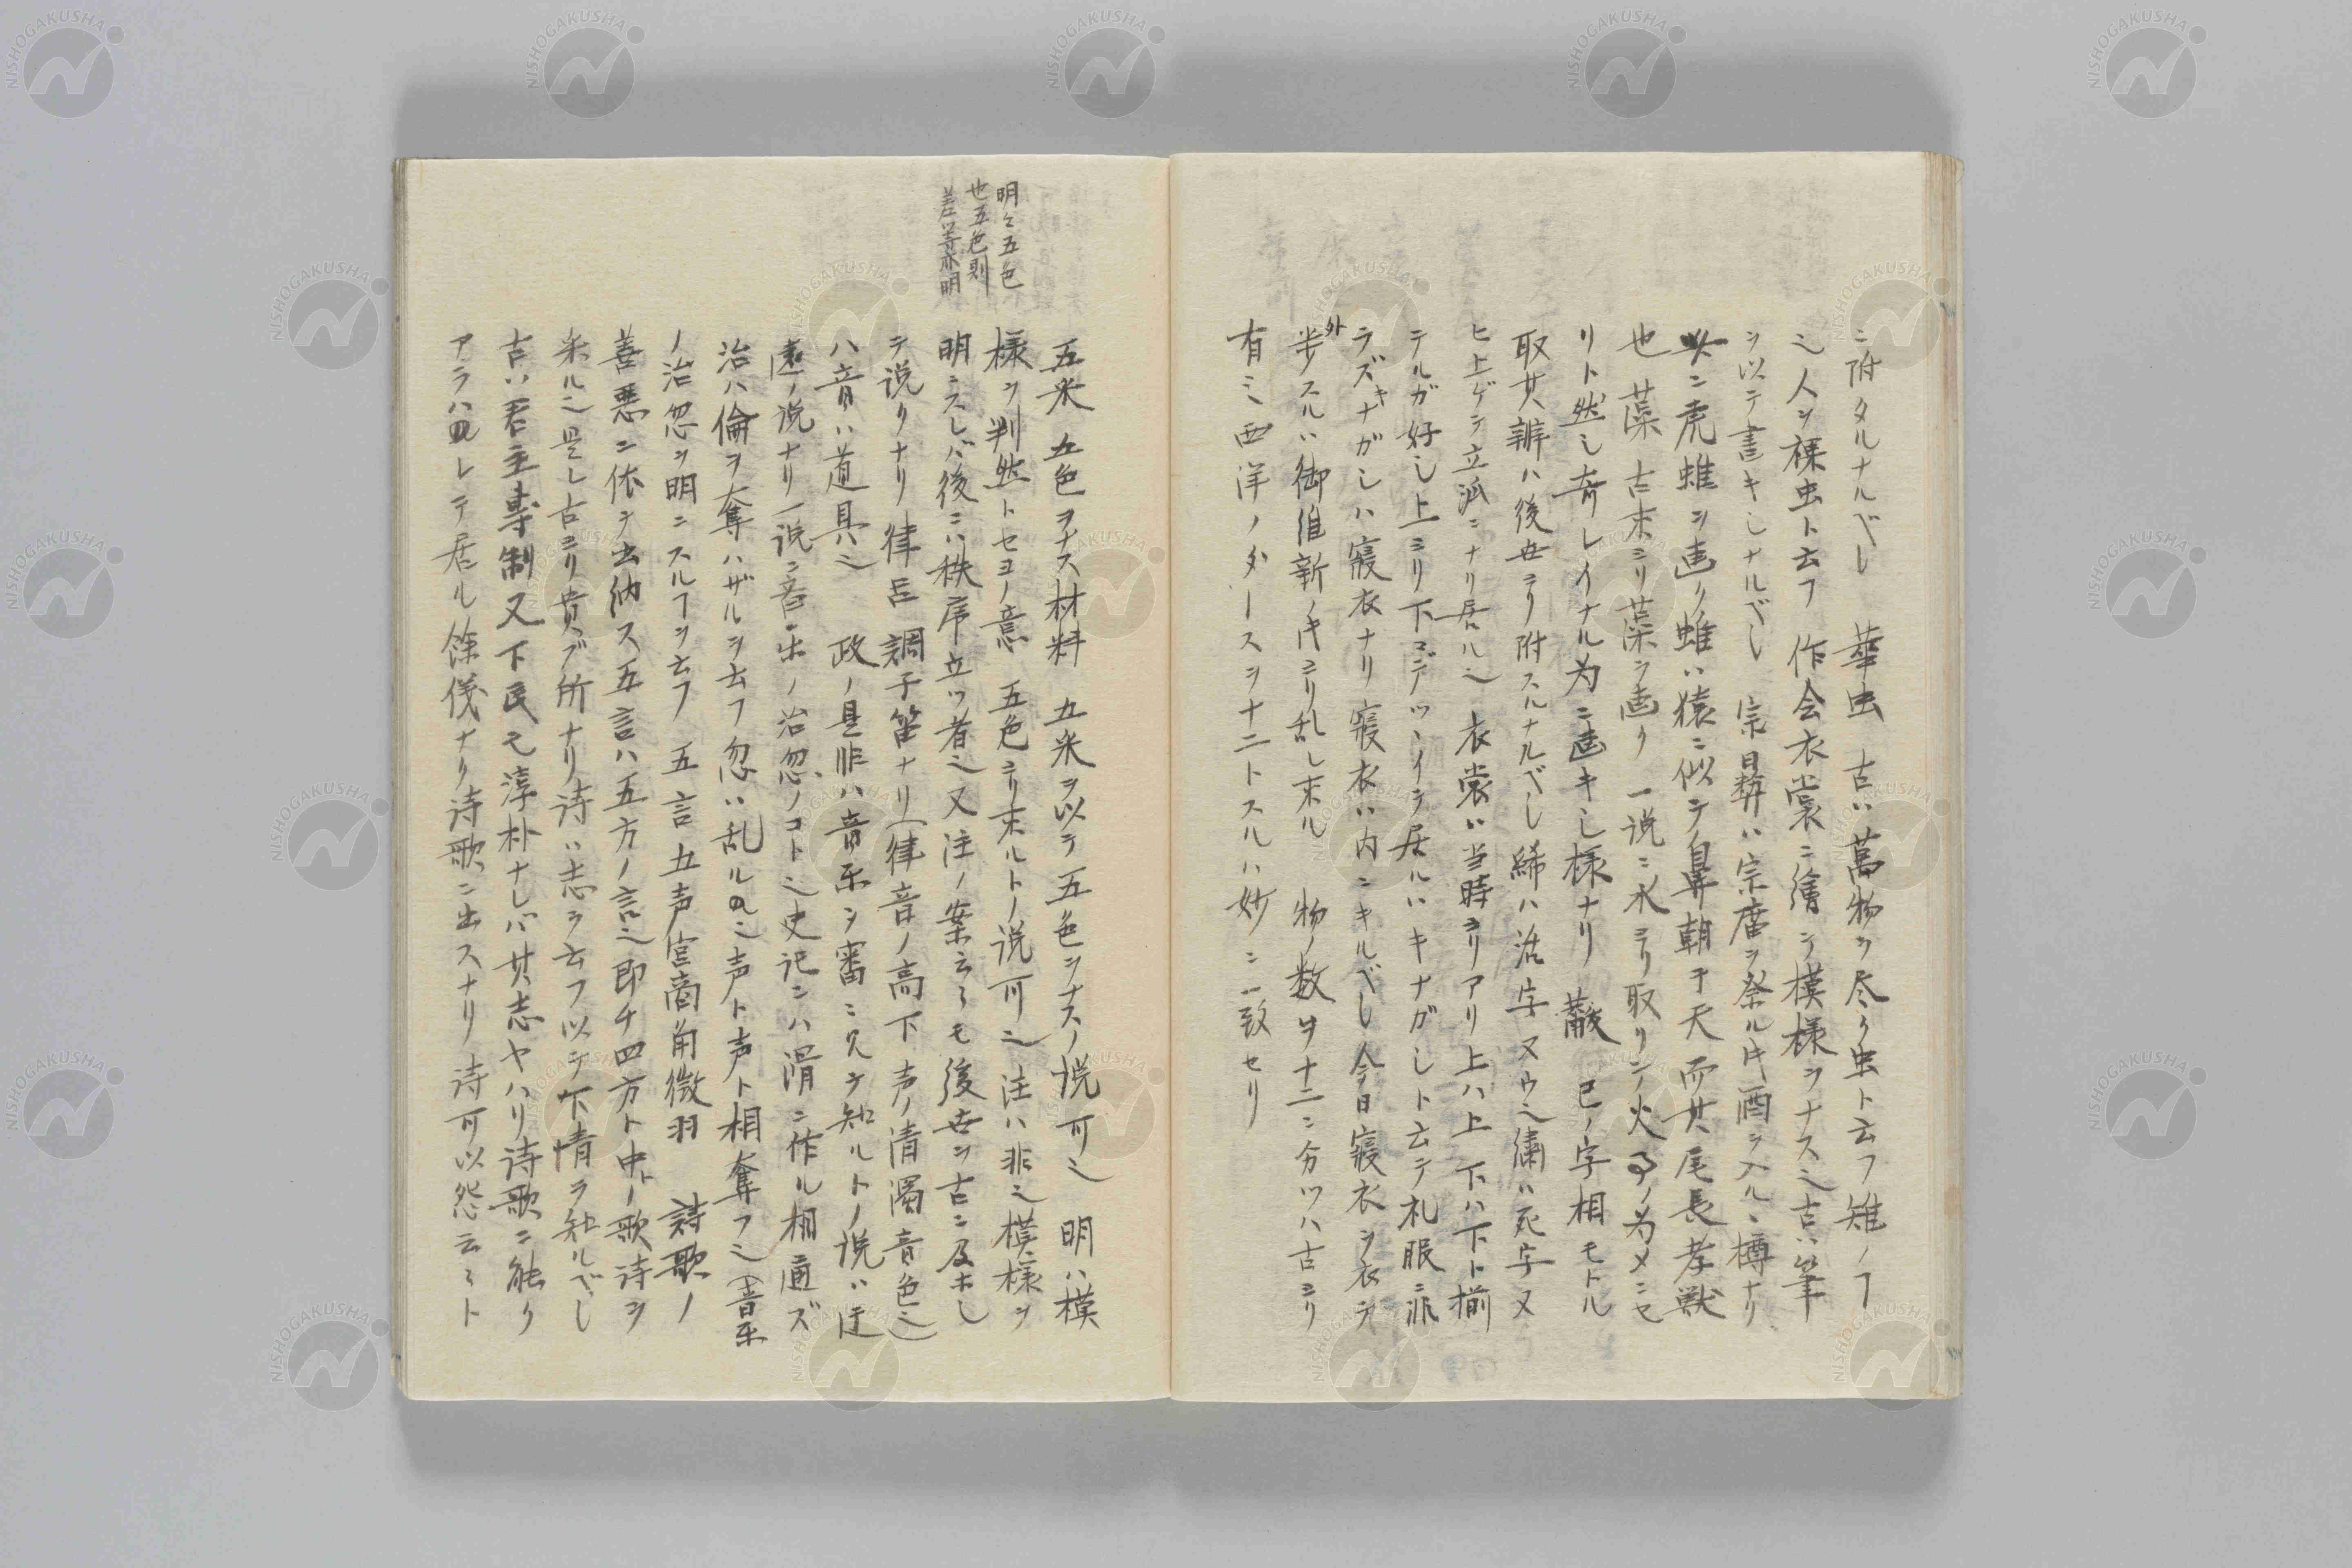 ニ附タルナルベし 華虫 古ハ萬物ヲ尽ク虫ト云フ雉ノヿ
也人ヲ裸虫ト云フ 作会衣裳ニ繪ヲ模様ヲナス也古ハ筆
ヲ以テ書キしナルベし 宗彜ハ宗庿ヲ祭ル时酒ヲ入ルヽ樽ナリ
以ニ虎蜼ヲ画ク蜼ハ猿ニ似テ鼻朝于天而其尾長孝獣
也 藻 古来ヨリ藻ヲ画ク 一説ニ水ヨリ取リシ火ノ為メニセ
リト然し奇レイナル為ニ画キし様ナリ 黻 己ノ字相モトル
取其辨ハ後世ヨリ附スルナルベし 絺ハ活字 ヌウ也繡ハ死字ヌ
ヒ上ゲテ立派ニナリ居ル也 衣裳ハ当時ヨリアリ上ハ上 下ハ下ト揃
テルガ好し上ヨリ下マデツヽイテ居ルハキナガしト云テ礼服ニ非
ラズキナガしハ寝衣ナリ寝衣ハ内ニキルベし今日寝衣ヲ衣テ
外歩スルハ御維新ノ时ヨリ乱し来ル 物ノ数ヲ十二ニ分ツハ古ヨリ
有ミ西洋ノダースヲ十二トスルハ妙ニ一致セリ
明々五色
也五色則
差等亦明
五采 五色ヲナス材料 五采ヲ以テ五色ヲナスノ説可也 明ハ模
様ヲ判然トセヨノ意 五色ヨリ来ルトノ説可也 注ハ非也模様ヲ
明ニスレバ後ニハ秩序立ツ者也又注ノ案云々モ後世ヲ古ニ及ホし
テ説クナリ 律呂 調子笛ナリ(律音ノ高下 声ノ清濁音色也)
八音ハ道具也 政ノ是非ハ音楽ヲ審ニ見テ知ルトノ説ハ迂
遠ノ説ナリ一説ニ音ニ出ノ治忽ノコト也史記ニハ滑ニ作ル相通ズ
治ハ倫ヲ奪ハザルヲ云フ忽ハ乱ルヽ也声ト声ト相奪フ也(音楽
ノ治忽ヲ明ニスルヿヲ云フ 五言 五声宮商角徴羽 詩歌ノ
善悪ニ依テ出納ス五言ハ五方ノ言也即チ四方ト中トノ歌詩ヲ
采ル也是し古ヨリ貴ブ所ナリ詩ハ志ヲ云フ以テ下情ヲ知ルベし
古ハ君主専制又下民モ淳朴ナレバ其志ヤハリ詩歌ニ能ク
アラハレテ居ル餘儀ナク詩歌ニ出スナリ 詩可以怨云々ト